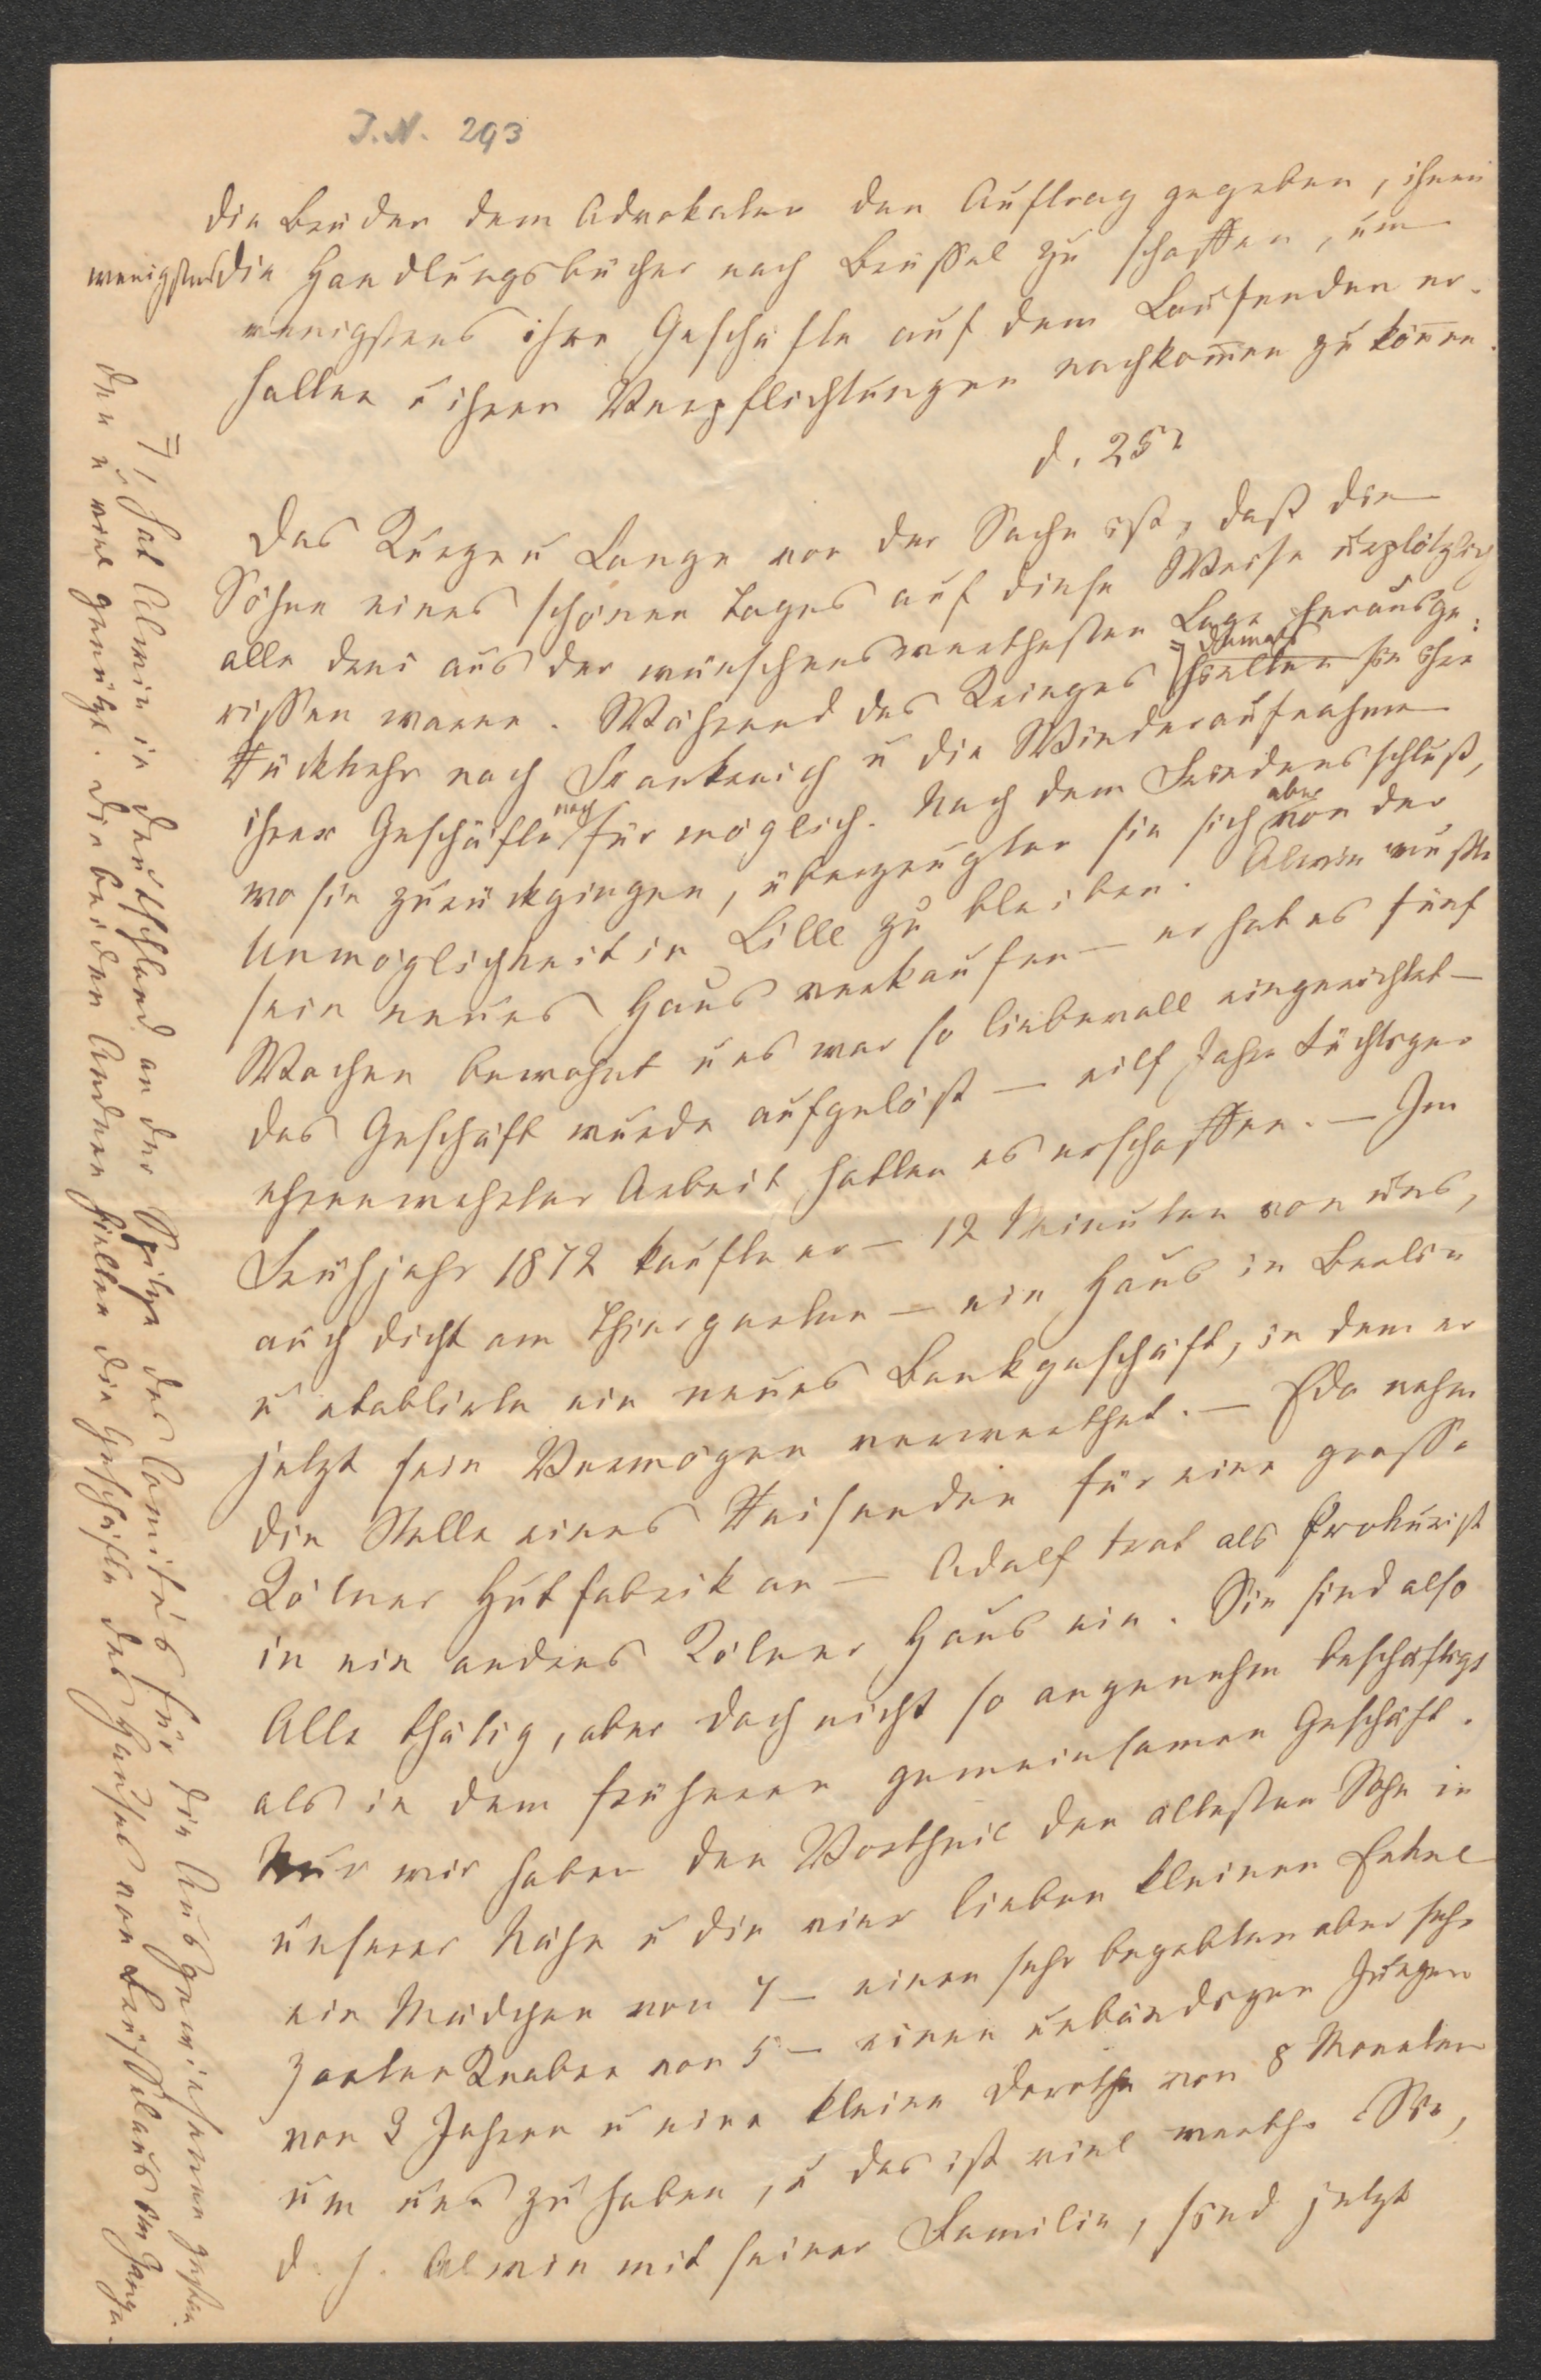 J.N. 293
die Brüder dem Advokaten den Auftrag gegeben, ihnen
wenigstens die Handlungsbücher nach Brüssel zu schaffen, um
wenigstens ihre Geschäfte auf dem Laufenden er-
halten u ihren Verpflichtungen nachkom̄en zu kön̄en.
d. 25t
Das Kurze u Lange von der Sache ist, daß die
Söhne eines schönen Tages auf diese Weise urplötzlich
alle drei aus der wünschenswerthesten Lage herausge-
rissen waren. Während des Krieges hielten sie ihre
damals
Rückkehr nach Frankreich u die Wiederaufnahme
ihrer Geschäfte noch für möglich. Nach dem Friedensschluß,
wo sie zurückgingen, überzeugten sie sich aber von der
Unmöglichkeit in Lille zu bleiben. Alwin mußte
sein neues Haus verkaufen – er hat es fünf
Wochen bewohnt u es war so liebevoll eingerichtet –
das Geschäft wurde aufgelöst – eilf Jahre tüchtiger
ehrenwerther Arbeit hatten es erschaffen. – Im
Frühjahr 1872 kaufte er – 12 Minuten von uns,
auch dicht am Thiergarten – ein Haus in Berlin
u etablirte ein neues Bankgeschäft, in dem er
jetzt sein Vermögen verwerthet. – Edo nahm
die Stelle eines Reisenden für eine grosse
Kölner Hutfabrik an – Adolf trat als Prokurist
in ein anderes Kölner Haus ein. Sie sind also
Alle thätig, aber doch nicht so angenehm beschäftigt
als in dem früheren gemeinsamen Geschäft.
Nur wir haben den Vortheil den ältesten Sohn in
unserer Nähe u die vier lieben kleinen Enkel
ein Mädchen von 7 – einen sehr begabten aber sehr
zarten Knaben von 5 – einen unbändigen Jungen
von 2 Jahren u eine kleine Dorothe von 8 Monaten
um uns zu haben, u das ist viel werth. Sie,
d. h. Alwin mit seiner Familie, sind jetzt
hat Alwin in Deutschland an der Spitze des Comité's für die Ausgewiesenen gestan-
den u viel genützt. Die beiden Andern hielten die Geschäfte des Hauses von Brüssel aus im Gange.